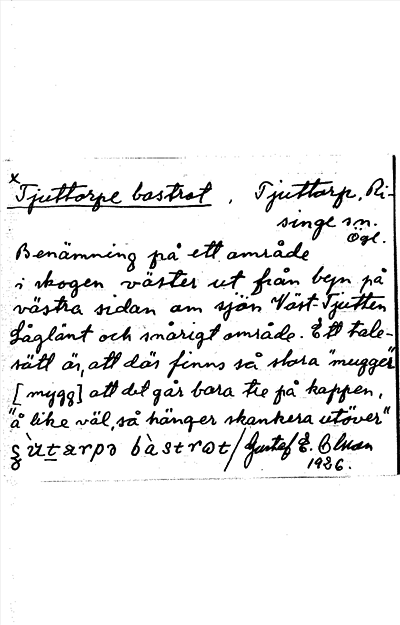 x
Tjuttorpe bastrot, Tjuttorp, Ri-
singe sn.
Ögl.
Benämning på ett område
i skogen väster ut från byn på
västra sidan om sjön Väst-Tjutten
Låglänt och snårigt område. Ett tale-
sätt är, att där finns så stora "mugger"
[mygg] att det går bara tre på kappen,
"å like väl, så hänger skankera utöver"
bàstrot/Gustef E. Olsson
1926.